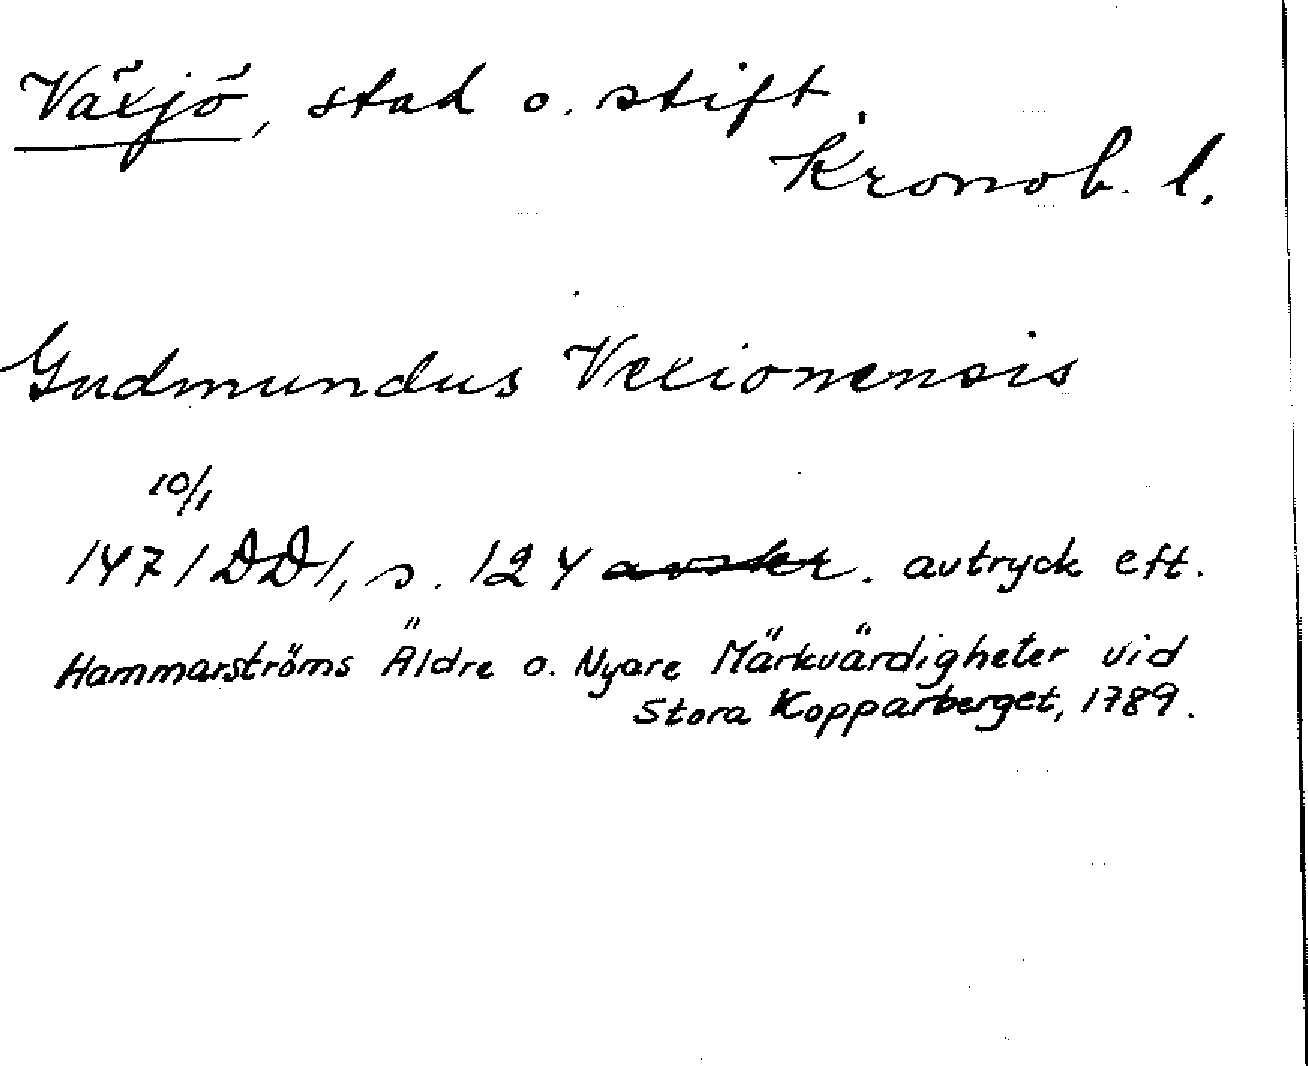 Växjö, stad o. stift.
Kronob. l.
Gudmundus Vexionensis
10/1
1471 DD 1, s. 124 avskr. avtryck eft.
Hammarströms Äldre o. Nyare Märkvärdigheter vid
Stora Kopparberget, 1789.